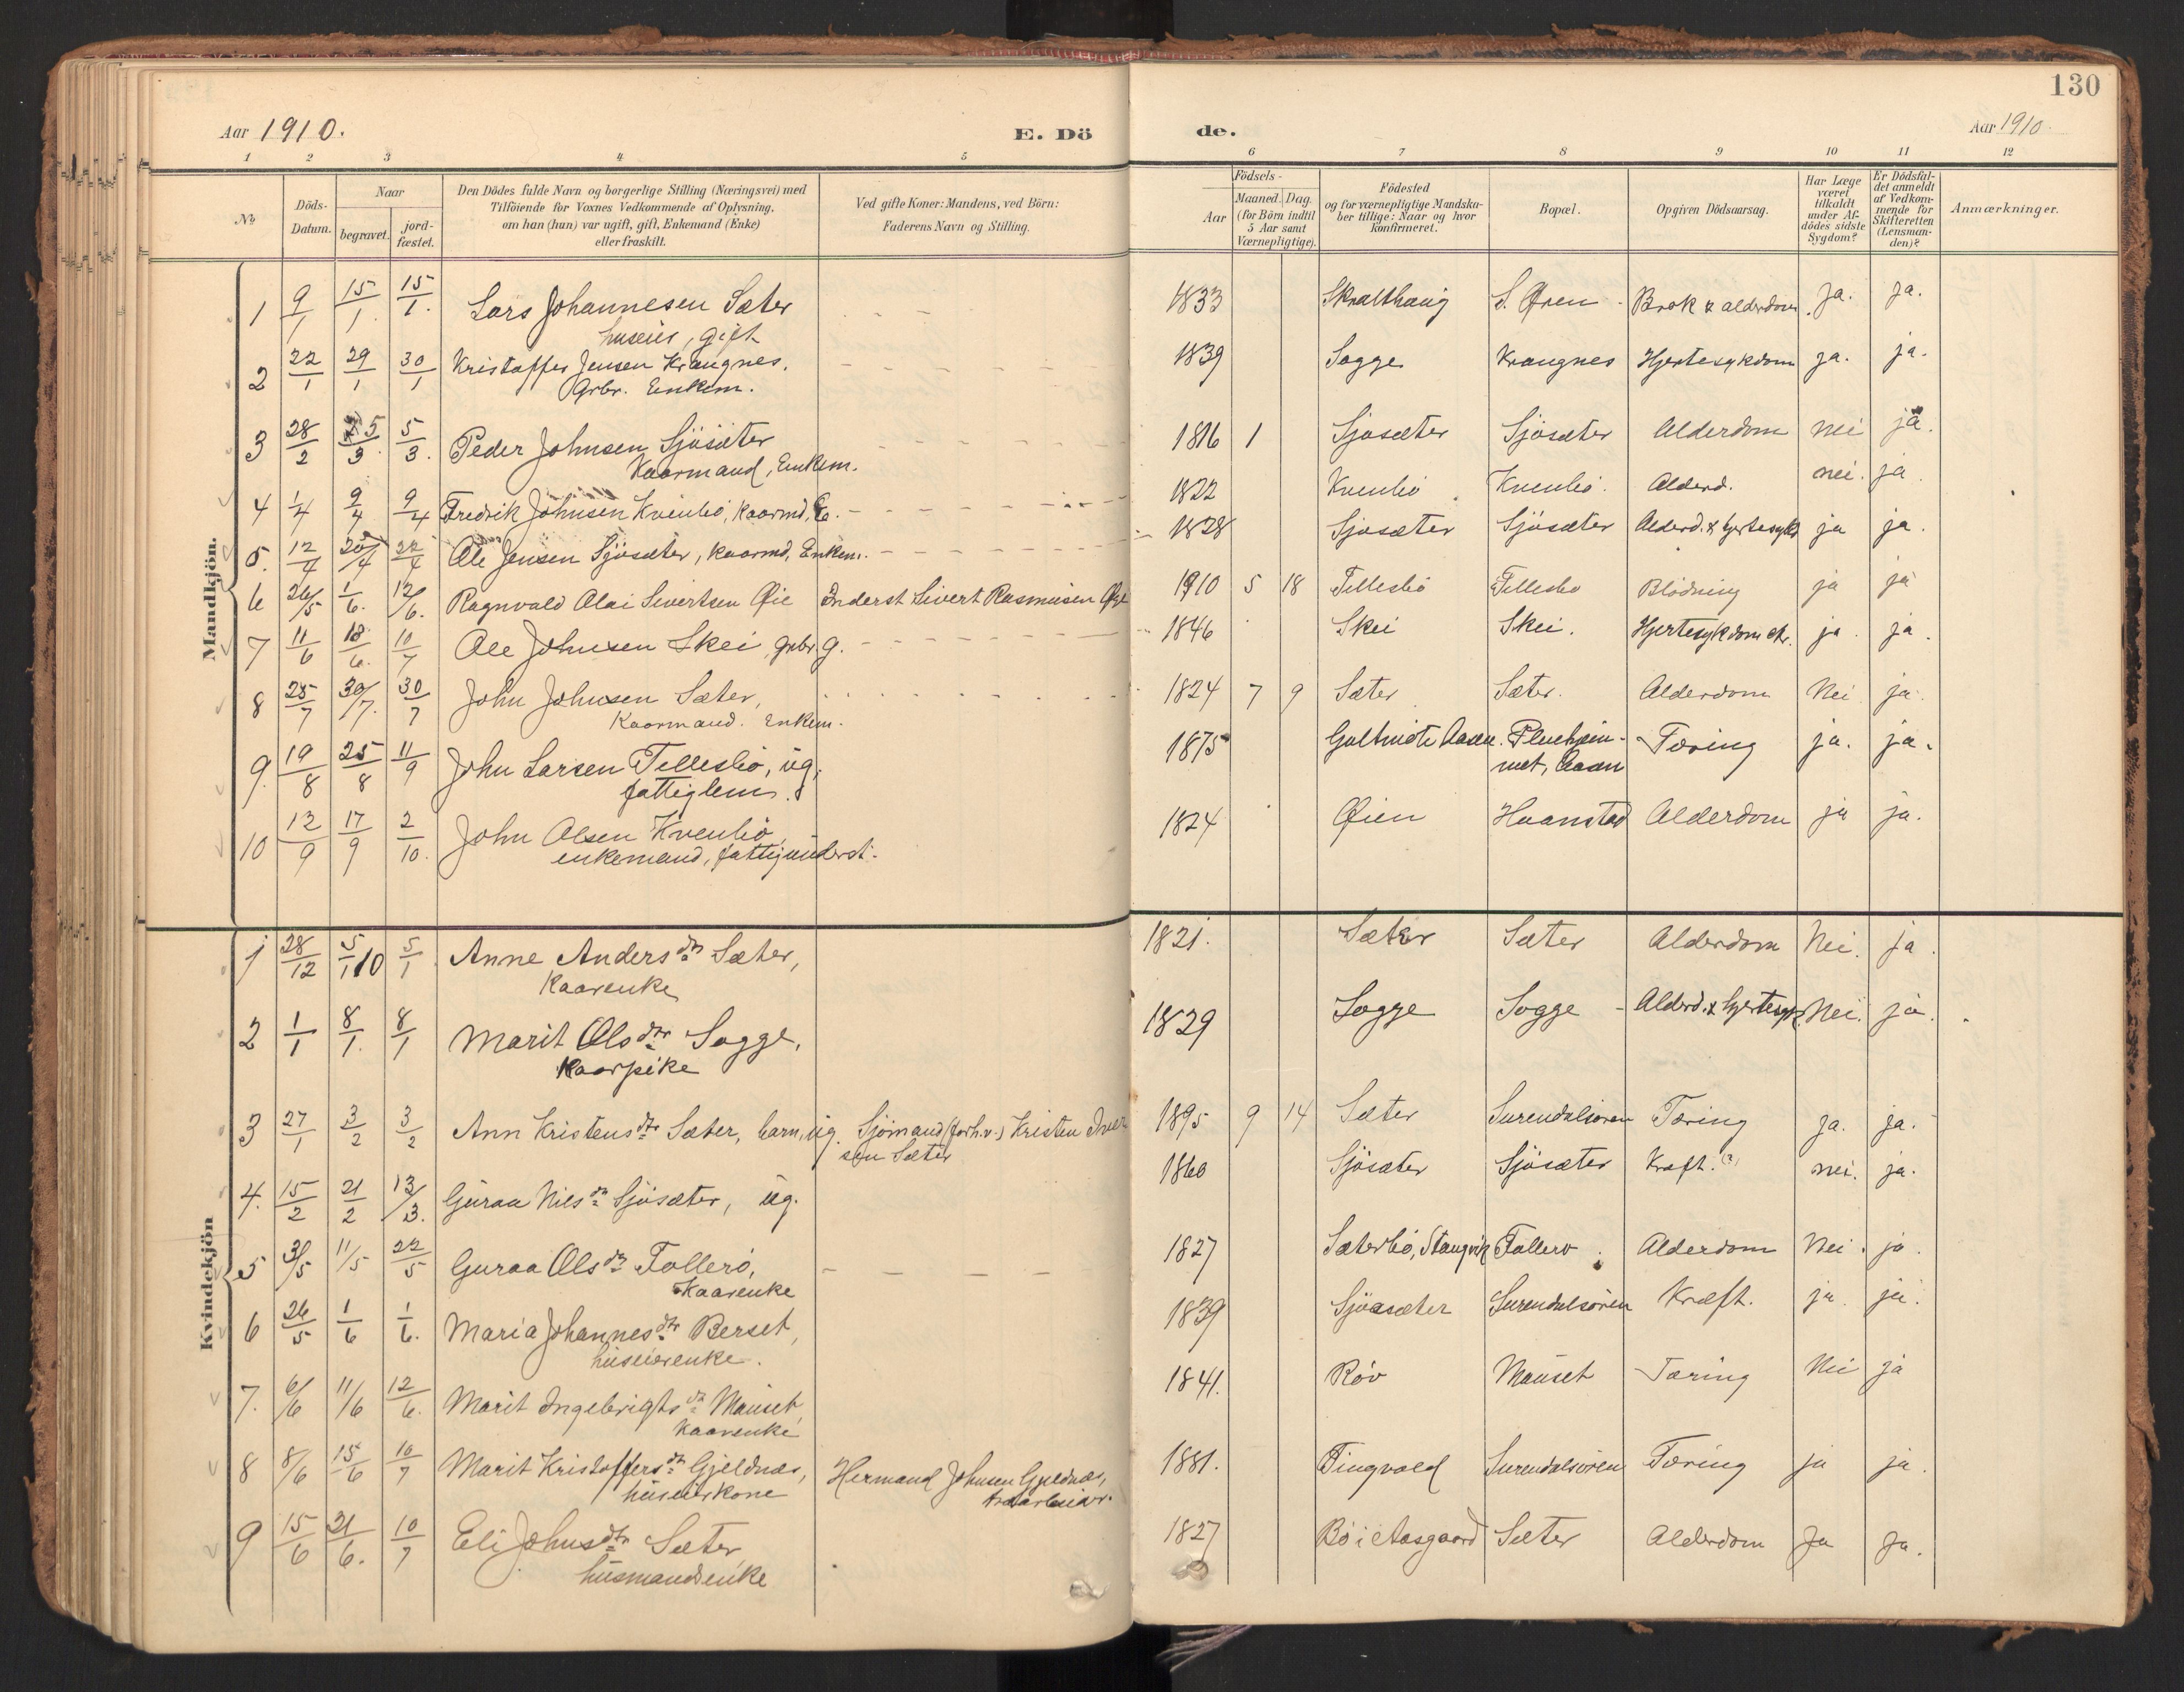 130
Aar 1910. E. Dö de. Aar 1910.
1 2 3 4 5 6 7 8 9 10 11 12
No
Döds-Datum.
Naar
begravet.
jord-fæstet.
Den Dödes fulde Navn og borgerlige Stilling (Næringsvei) med
Tilföiende for Voxnes Vedkommende af Oplysning,
om han (hun) var ugift, gift, Enkemand (Enke)
eller fraskilt.
Ved gifte Koner: Mandens, ved Börn:
Faderens Navn og Stilling.
Födsels-
Aar
Maaned. Dag.
(for Börn indtil
5 Aar samt
Værnepligtige).
Födested
og for værnepligtige Mandska-
ber tillige: Naar og hvor
konfirmeret.
Bopæl.
Opgiven Dödsaarsag.
Har Læge
været
tilkaldt
under Af-
dödes sidste
Sygdom?
Er Dödsfal-
det anmeldt
af Vedkom-
mende for
Skifteretten
(Lensman-
den)?
Anmærkninger.
Mandkjön.
1 9/1 15/1. 15/1. Lars Johannesen Sæter 1833 Skralthaug S. Øren Brok & alderdom ja. ja.
huseier, gift
2 22/1 29/1 30/1 Kristoffer Jensen Krangnes. 1839 Sogge Krangnes Hjertesykdom ja. ja.
Grbr. Enkem.
3 28/2 5/3. 5/3. Peder Johnsen Sjösæter 1816 1 Sjosæter Sjösæter Alderdom nei ja.
Kaarmand, Enkem.
4 1/4 9/4 9/4 Fredrik Johnsen Kvenbö, kaarmd, E. 1822 Kvenbö Kvenbö. Alderd. nei. ja
5. 12/4 20/4 22/4 Ole Jensen Sjösæter, kaarmd, Enkem. 1828 Sjösæter Sjösæter Alderd. & hjertesykd ja ja.
6 26/5 1/6. 12/6. Ragnvald Olai Sivertsen Øie Inderst Sivert Rasmusen Øie 1910 5 18 Tellesbö Tellesbö Blödning ja ja
7 11/6 18/6. 10/7 Ole Johnsen Skei, grbr. g. 1846 Skei Skei. Hjertesykdom etc. ja. ja.
8 25/7 30/7. 30/7 John Johnsen Sæter, 1824 7 9 Sæter Sæter. Alderdom Nei ja.
Kaarmand. Enkem.
9. 19/8 25/8 11/9 John Larsen Tellesbö, ug, 1875 Aasen. Pleiehjem- Tæring ja. ja.
fattiglem. met, Aasen
10 12/9 17/9 2/10. John Olsen Kvenbö, 1824 Øien Haanstad Alderdom ja ja.
enkemand, fattigunderst.
Kvindekjön
1 28/12 5/1 10 5/1 Anne Andersdtr Sæter, 1821. Sæter Sæter Alderdom Nei. ja.
Kaarenke
2 1/1 8/1. 8/1 Marit Olsdtr Sogge, 1829 Sogge Sogge Alderd. & hjertesyk. Nei. ja.
Kaarpike
3 27/1 3/2 3/2 Ann Kristensdtr Sæter, barn, ug. Sjömand (forh.v.) Kristen Iver 1895 9 14 Sæter Surendalsören Tæring ja. ja.
sen Sæter
4. 15/2 21/2 13/3. Guraa Nilsdtr Sjösæter, ug. 1860 Sjösæter Sjösæter Kræft. (?) nei. ja.
5 3/5 11/5 22/5 Guraa Olsdtr Tallerö, 1827 Sæterbö, Stangvik Tallerö Alderdom Nei. ja.
Kaarenke
6 26/5 1/6 1/6. Maria Johannesdtr Berset, 1839 Sjösæter Surendalsören Kræft. ja ja.
huseierenke.
7. 6/6 11/6 12/6. Marit Ingebrigtsdtr Mauset, 1841. Röv Mauset Tæring Nei ja
Kaarenke
8 8/6 15/6 10/7 Marit Kristoffersdtr Gjeldnæs, Hermand Johnsen Gjeldnæs, 1881. Tingvold Surendalsören Tæring ja ja.
huseierkone
9 15/6 21/6. 10/7 Eli Johnsdtr Sæter 1827 Bö i Aasgaard Sæter Alderdom Ja Ja.
husmandsenke